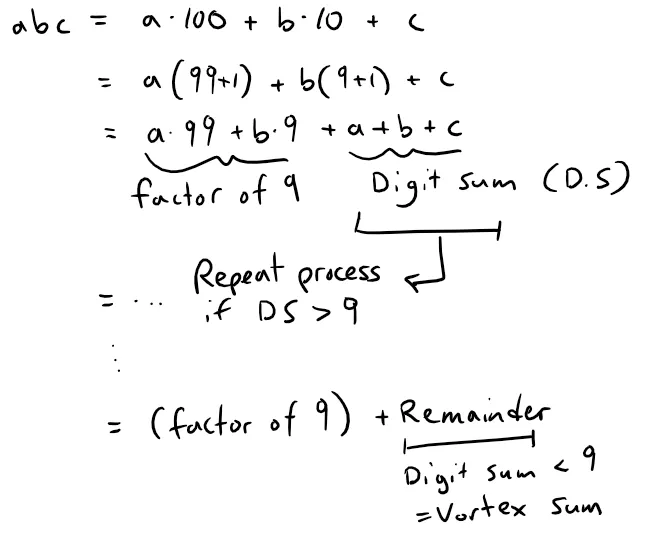 abc = a·100 + b·10 + c
= a(99+1) + b(9+1) + c
= a·99 + b·9 + a+b+c
factor of 9 Digit sum (D.S)
Repeat process
= ... if DS > 9
⋮
= (factor of 9) + Remainder
Digit sum < 9
= Vortex sum